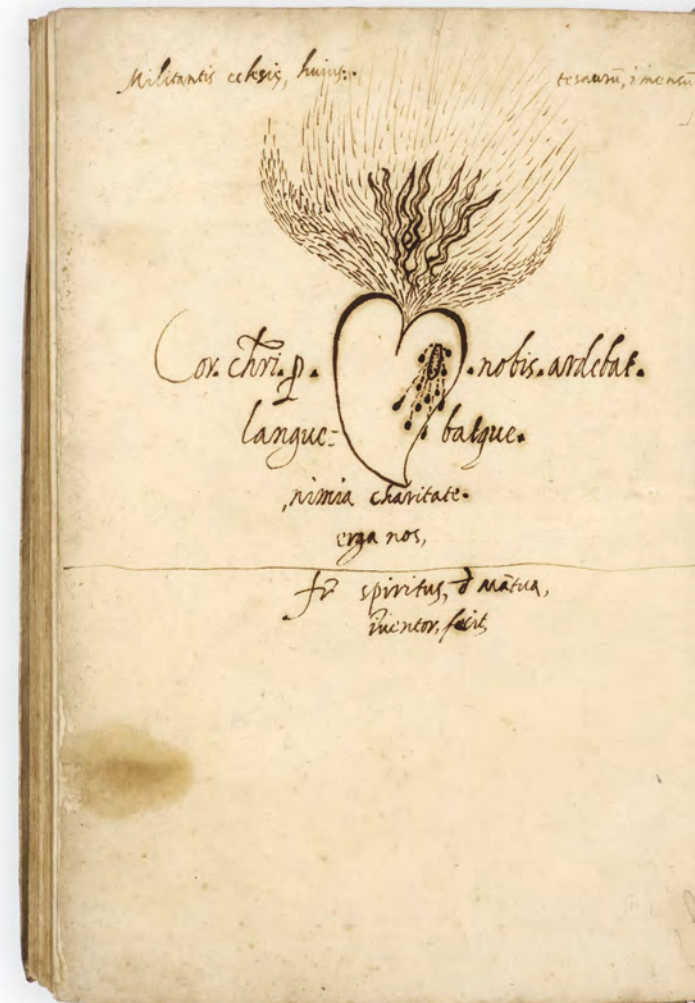 Militantis eclesię, huius:. tesaurū, imensū
Cor. chr̄i. ꝑ. .nobis. ardebat.
langue: batque.
,nimia charitate.
erga nos,
fr̄ spiritus, đ mātua,
īuentor, fecit